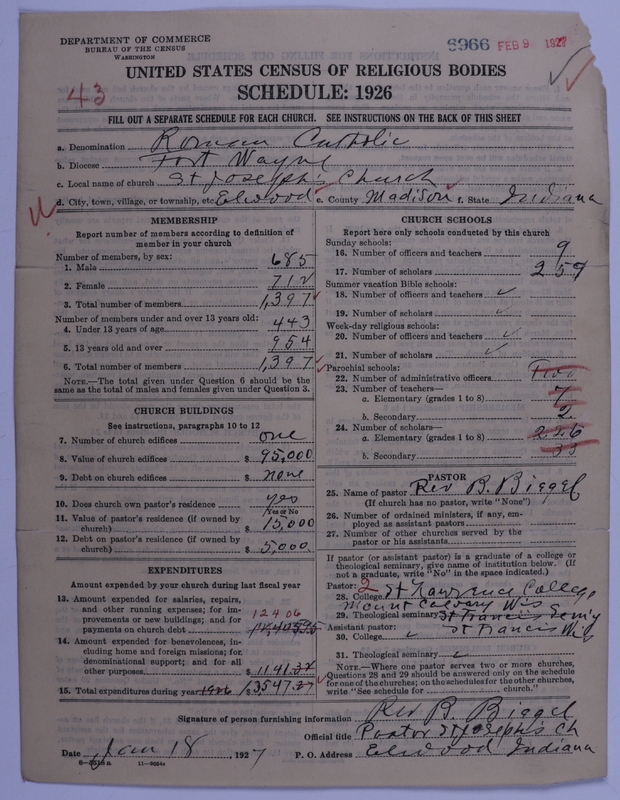 DEPARTMENT OF COMMERCE
BUREAU OF THE CENSUS
WASHINGTON
S966 FEB 9 1927
UNITED STATES CENSUS OF RELIGIOUS BODIES
43
SCHEDULE: 1926
FILL OUT A SEPARATE SCHEDULE FOR EACH CHURCH. SEE INSTRUCTIONS ON THE BACK OF THIS SHEET
a. Denomination Roman Catholic
b. Diocese Fort Wayne
c. Local name of church St Joseph's Church
d. City, town, village, or township, etc. Elwood e. County Madison f. State Indiana
MEMBERSHIP
Report number of members according to definition of
member in your church
Number of members, by sex:
1. Male 685
2. Female 712
3. Total number of members 1,397
Number of members under and over 13 years old:
4. Under 13 years of age 443
5. 13 years old and over 954
6. Total number of members 1,397
NOTE.—The total given under Question 6 should be
same as the total of males and females given under Question 3.
CHURCH BUILDINGS
See instructions, paragraphs 10 to 12
7. Number of church edifices one
8. Value of church edifices $ 95,000
9. Debt on church edifices $ none
10. Does church own pastor's residence yes
Yes or No
11. Value of pastor's residence (if owned by
church) $ 15,000
12. Debt on pastor's residence (if owned by
church) $ 5,000
EXPENDITURES
Amount expended by your church during last fiscal year
13. Amount expended for salaries, repairs,
and other running expenses; for im-
provements or new buildings; and for 12406
payments on church debt
14. Amount expended for benevolences, in-
cluding home and foreign missions; for
denominational support; and for all
other purposes $ 1141.32
15. Total expenditures during year 1926 $ 13547.27
CHURCH SCHOOLS
Report here only schools conducted by this church
Sunday schools:
16. Number of officers and teachers 9
17. Number of scholars 259
Summer vacation Bible schools:
18. Number of officers and teachers
19. Number of scholars
Week-day religious schools:
20. Number of officers and teachers
21. Number of scholars
Parochial schools:
22. Number of administrative officers Two
23. Number of teachers—
a. Elementary (grades 1 to 8) 7
b. Secondary 2
24. Number of scholars—
a. Elementary (grades 1 to 8) 226
b. Secondary 33
PASTOR
25. Name of pastor Rev B. Biegel
(If church has no pastor, write "None")
26. Number of ordained ministers, if any, em-
ployed as assistant pastors
27. Number of other churches served by the
pastor or his assistants
If pastor (or assistant pastor) is a graduate of a college or
theological seminary, give name of institution below. (If
not a graduate, write "No" in the space indicated.)
Pastor: 2
28. College St Lawrence College
Mount Calvary Wis
29. Theological seminary St Francis Sem'y
Assistant pastor: St Francis Wis
30. College
31. Theological seminary
NOTE.—Where one pastor serves two or more churches,
Questions 28 and 29 should be answered only on the schedule
for one of the churches; on the schedules for the other churches,
write "See schedule for church."
Signature of person furnishing information Rev B. Biegel
Official title Pastor St Joseph's Ch
Date Jan 18 1927 P. O. Address Elwood Indiana